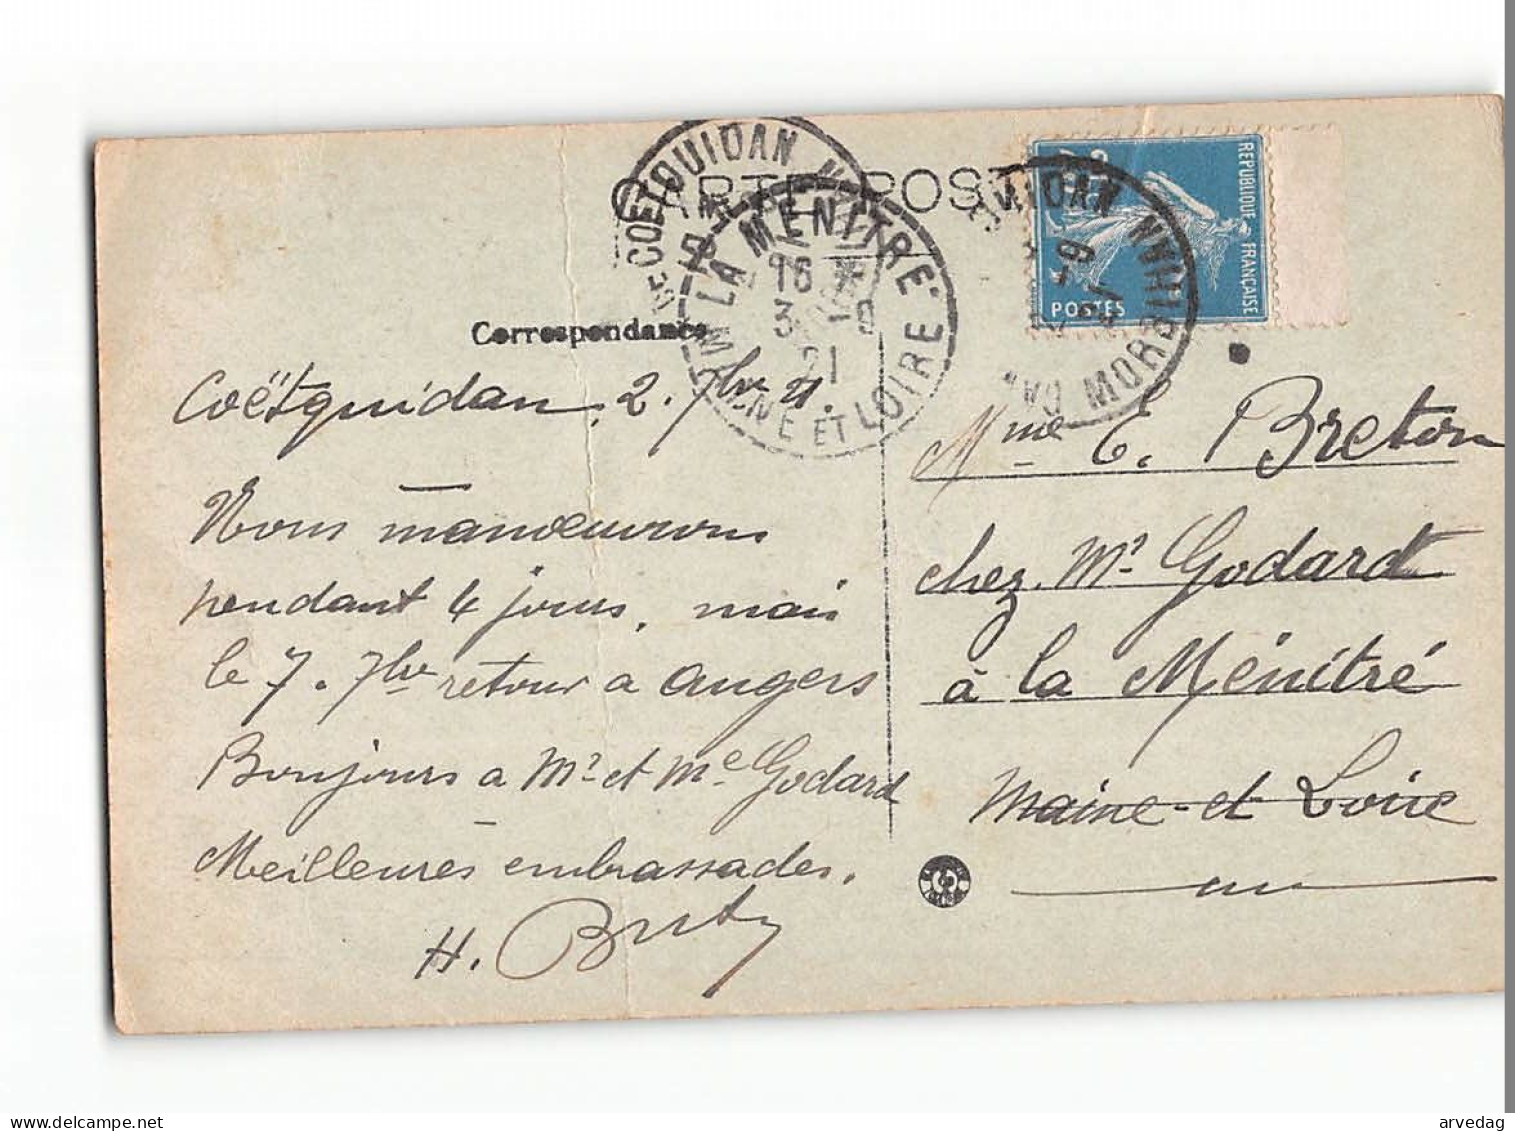 CARTE POSTALE
COETQUIDAN MORBIHAN
LA MENITRE
16
3 - 9
21
MAINE ET LOIRE
REPUBLIQUE FRANÇAISE
POSTES
MORBIHAN
Correspondance
Coëtquidan, 2. 7bre 21.
Nous manoeuvrons
pendant 4 jours, mais
le 7. 7bre retour a angers
Bonjours a Mr et Me Godard
Meilleures embrassades.
Mme E. Breton
chez Mr Godard
à la Ménitré
Maine-et-Loire
arvedag